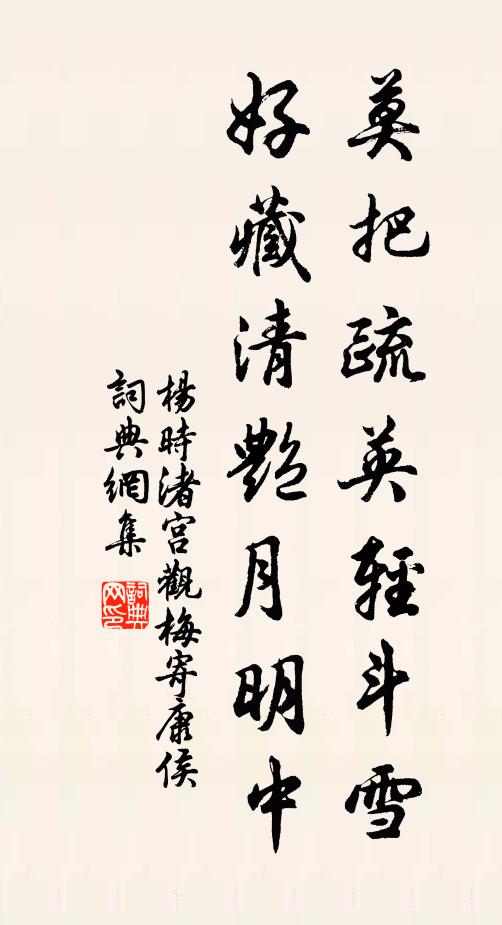 莫把疏英輕斗雪
好藏清艷月明中
楊時渚宮觀梅寄康侯
詞典網集
詞典网印